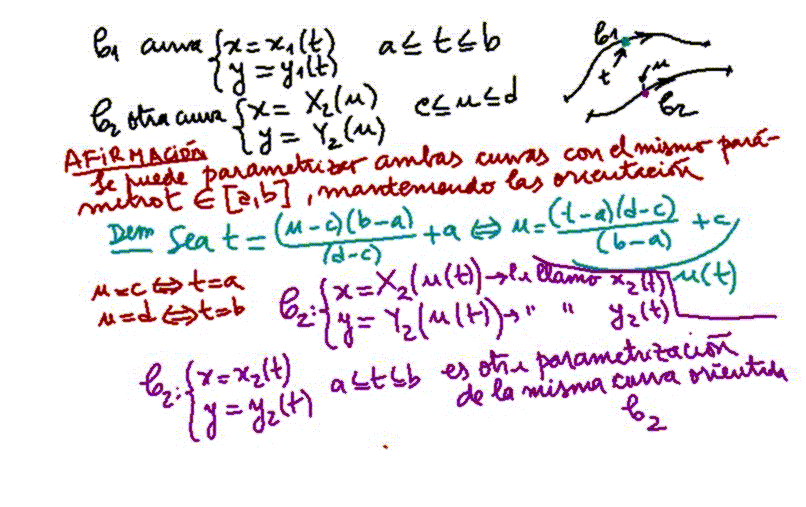 𝒞1 curva { x = x1(t)   a ≤ t ≤ b
y = y1(t)
𝒞1
t
u
𝒞2
𝒞2 otra curva { x = X2(u)   c ≤ u ≤ d
y = Y2(u)
AFIRMACIÓN
Se puede parametrizar ambas curvas con el mismo pará-
metro t ∈ [a,b], manteniendo las orientación
Dem Sea t = (u-c)(b-a)/(d-c) + a ⇔ u = (t-a)(d-c)/(b-a) + c
u(t)
u=c ⇔ t=a
u=d ⇔ t=b
𝒞2: { x = X2(u(t)) → le llamo x2(t)
y = Y2(u(t)) → " " y2(t)
𝒞2: { x = x2(t)   a ≤ t ≤ b
y = y2(t)
es otra parametrización
de la misma curva orientada
𝒞2